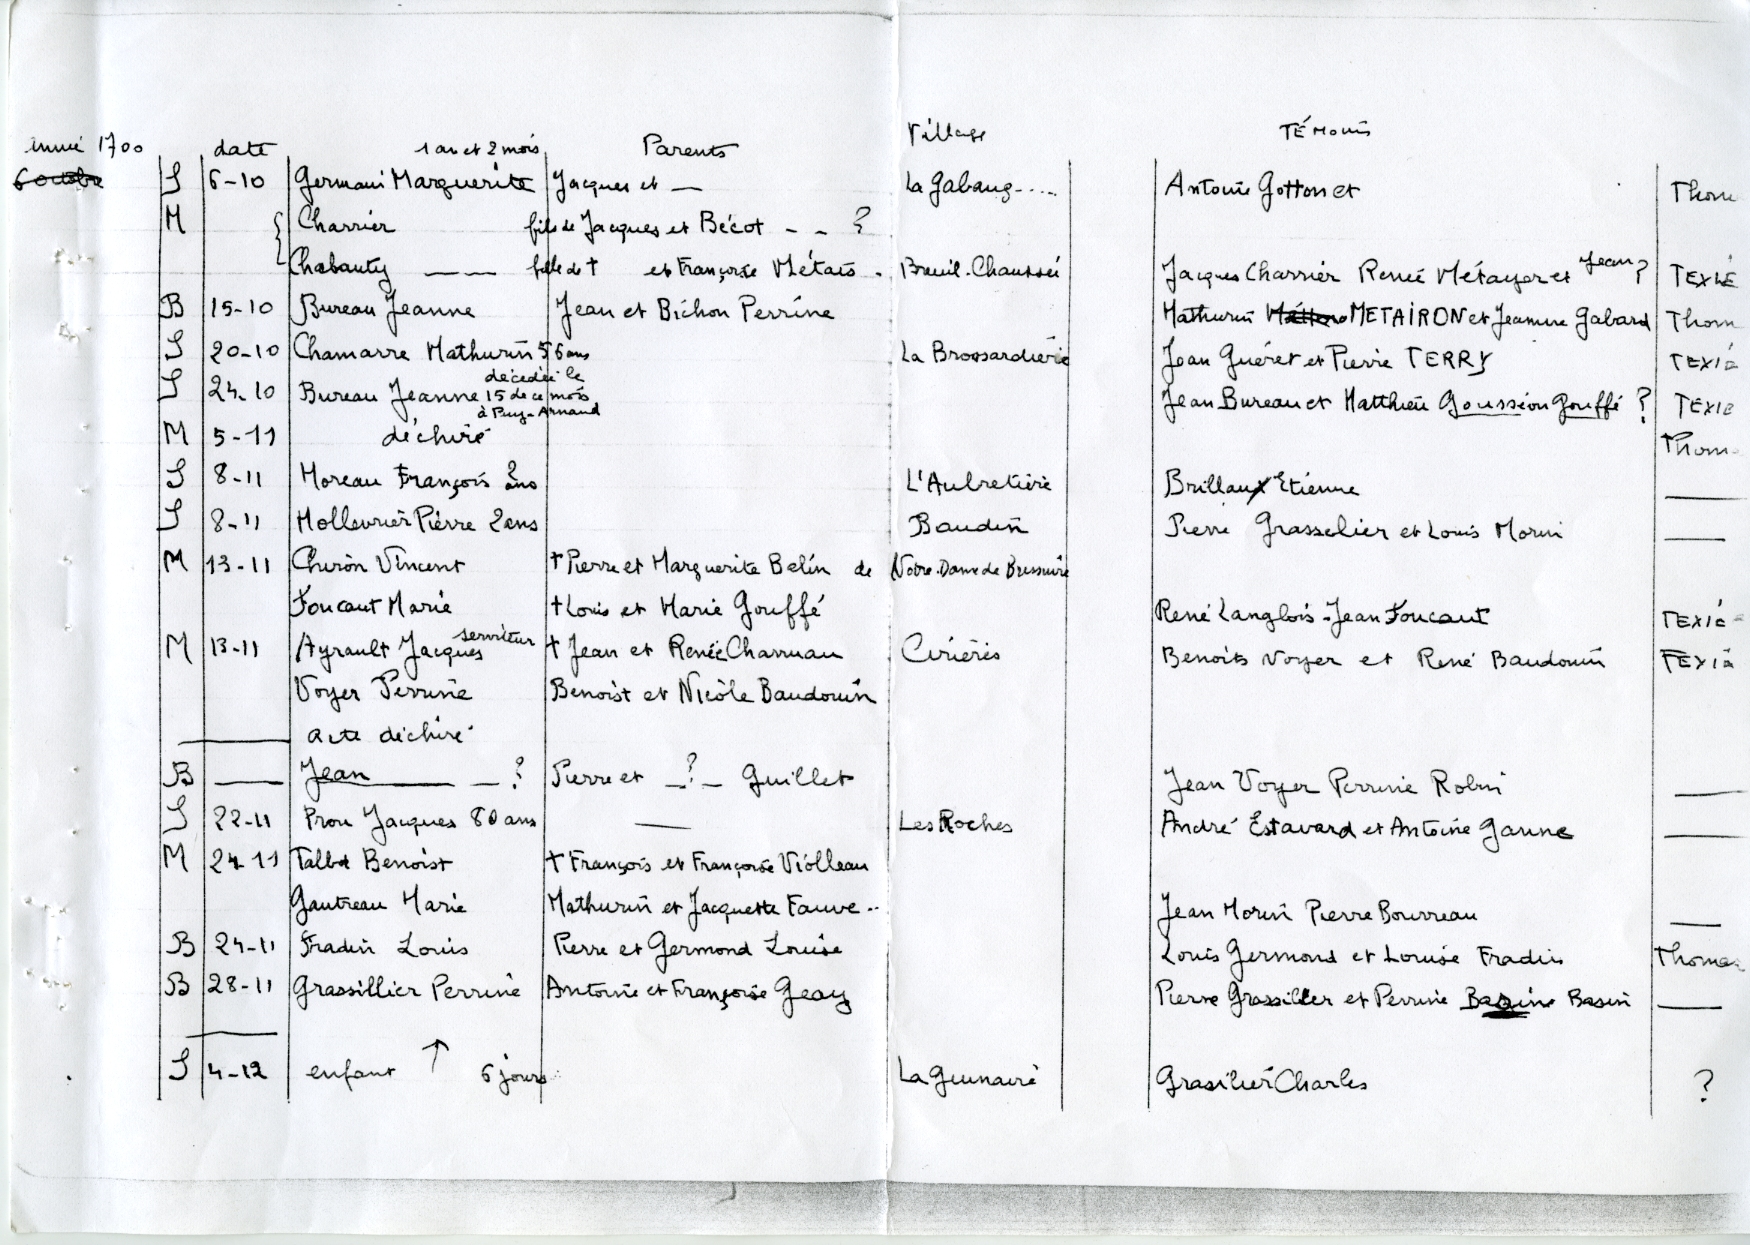 année 1700 date 1 an et 2 mois Parents Village TÉMoins
6 octobre S 6-10 Germain Marguerite Jacques et — La Gabaug..... Antoine Gotton et Thom
M Charrier fils de Jacques et Bécot - - ?
Chabauty —— fille de † et Françoise Métais - Breuil-Chaussée Jacques Charrier Renée Métayer et Jean ? TEXIÉ
B 15-10 Bureau Jeanne Jean et Bichon Perrine Mathurin METAIRON et Jeanne Gabard Thom
S 20-10 Chamarre Mathurin 56 ans La Brossardière Jean Guéret et Pierre TERRY TEXIÉ
S 24-10 Bureau Jeanne décédée le 15 de ce mois à Puy-Arnaud Jean Bureau et Matthieu Gousséon Gouffé ? TEXIE
M 5-11 déchiré Thom
S 8-11 Moreau François 2 ans L'Aubretière Brillaux Etienne —
S 8-11 Mollevrier Pierre 2 ans Baudin Pierre Grasselier et Louis Morin —
M 13-11 Chiron Vincent † Pierre et Marguerite Belin de Notre-Dame de Bressuire
Foucaut Marie † Louis et Marie Gouffé René Langlois - Jean Foucaut TEXIÉ
M 13-11 Ayrault Jacques serviteur † Jean et Renée Charruau Cirières Benoits Voyer et René Baudouin TEXIÉ
Voyer Perrine Benoist et Nicole Baudouin
acte déchiré
B — Jean — ? Pierre et — ? — Guillet Jean Voyer Perrine Robin —
S 22-11 Prou Jacques 80 ans — Les Roches André Estavard et Antoine Ganne —
M 24-11 Talbot Benoist † François et Françoise Violleau
Gautreau Marie Mathurin et Jacquette Fauve.. Jean Morin Pierre Bourreau —
B 24-11 Fradin Louis Pierre et Germond Louise Louis Germond et Louise Fradin Thomas
B 28-11 Grassillier Perrine Antoine et Françoise Geay Pierre Grassiller et Perrine Bazin Basin —
S 4-12 enfant ↑ 6 jours La Guinaire Grasilier Charles ?